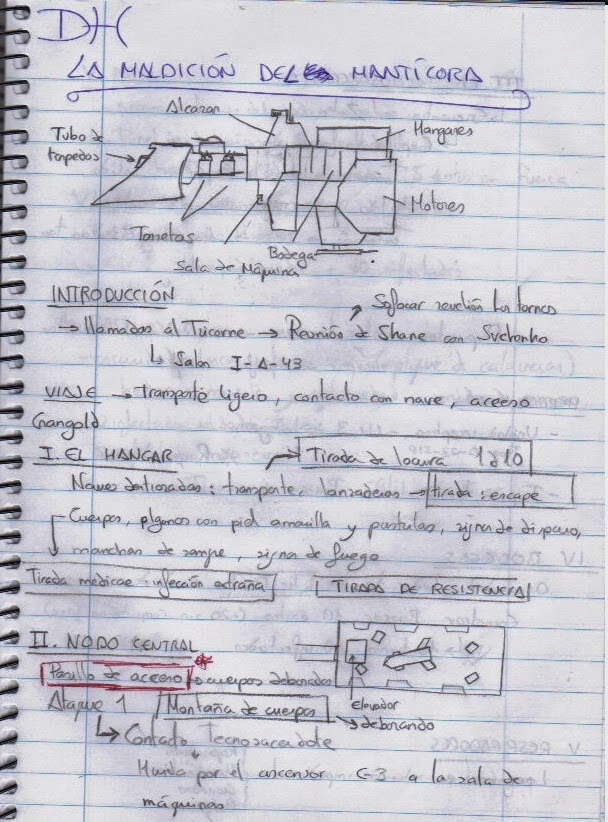 DH
LA MALDICIÓN DEL MANTÍCORA
Alcazar
Tubo de
torpedos
Hangares
Motores
Torretas
Bodega
Sala de Máquina
INTRODUCCIÓN
Sofocar
→ llamados al Tricorne → Reunión de Shane con
↳ Salón I-A-43
VIAJE → transporte ligero, contacto con nave, acceso
Gangold
I. EL HANGAR
Tirada de locura 1d10
Naves destrozadas: transporte, lanzaderas → tirada: escape
Cuerpos, algunos con piel amarilla y pustulas, signos de disparo,
manchas de sangre, signos de fuego
Tirada medicae: infección extraña
TIRADA DE RESISTENCIA
II. NODO CENTRAL
Pasillo de acceso * → cuerpos deborados
elevador
Ataque 1 Montaña de cuerpos → deborando
↳ Contacto Tecnosacerdote
Huida por el ascensor C-3 a la sala de
máquinas